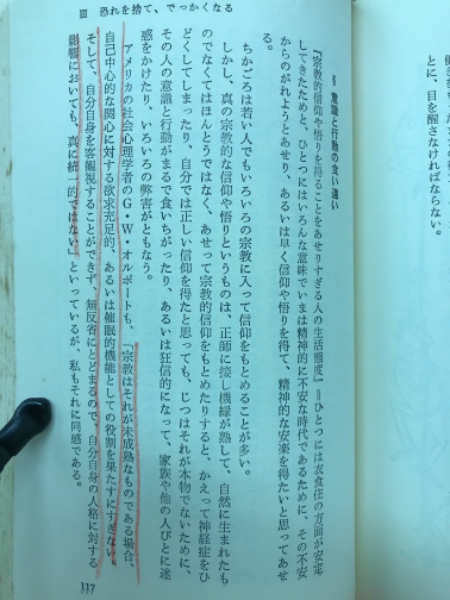 Ⅲ 恐れを捨て、でっかくなる
意識と行動の食い違い
『宗教的信仰や悟りを得ることをあせりすぎる人の生活態度』＝ひとつには衣食住の方面が安定
してきたためと、ひとつにはいろんな意味でいまは精神的に不安な時代であるために、その不安
からのがれようとあせり、あるいは早く信仰や悟りを得て、精神的な安楽を得たいと思ってあせ
る。
ちかごろは若い人でもいろいろの宗教に入って信仰をもとめることが多い。
しかし、真の宗教的な信仰や悟りというものは、正師に接し機縁が熟して、自然に生まれたも
のでなくてはほんとうではなく、あせって宗教的信仰をもとめたりすると、かえって神経症をひ
どくしてしまったり、自分では正しい信仰を得たと思っても、じつはそれが本物でないために、
その人の意識と行動がまるで食いちがったり、あるいは狂信的になって、家族や他の人びとに迷
惑をかけたり、いろいろの弊害がともなう。
アメリカの社会心理学者のＧ・Ｗ・オルポートも、「宗教はそれが未成熟なものである場合、
自己中心的な関心に対する欲求充足的、あるいは催眠的機能としての役割を果たすにすぎない。
そして、自分自身を客観視することができず、無反省にとどまるので、自分自身の人格に対する
影響においても、真に統一的ではない」といっているが、私もそれに同感である。
117
とに、目を醒さなければならない。